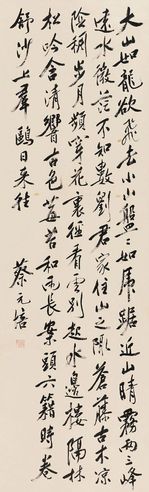 大山如龍欲飛去小小盤盤如虎踞近山晴霧兩三峰
遠水微茫不知數劉君家住山之隈蒼藤古木凉
陰稠步月頻穿花裏徑看雲別起水邊樓隔林
松吟含清響古色莓苔和雨長案頭六籍時卷
舒沙上羣鷗日來往
蔡元培